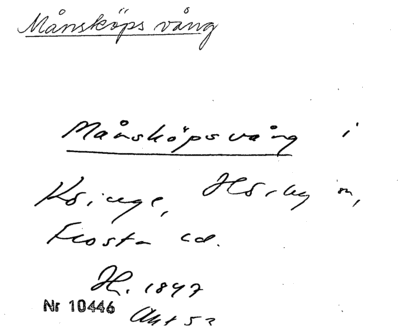 Månsköps vång
Månsköpsvång i
Kninge, Hörby sn,
Frosta hd.
H. 1847
Nr 10446
Akt 52